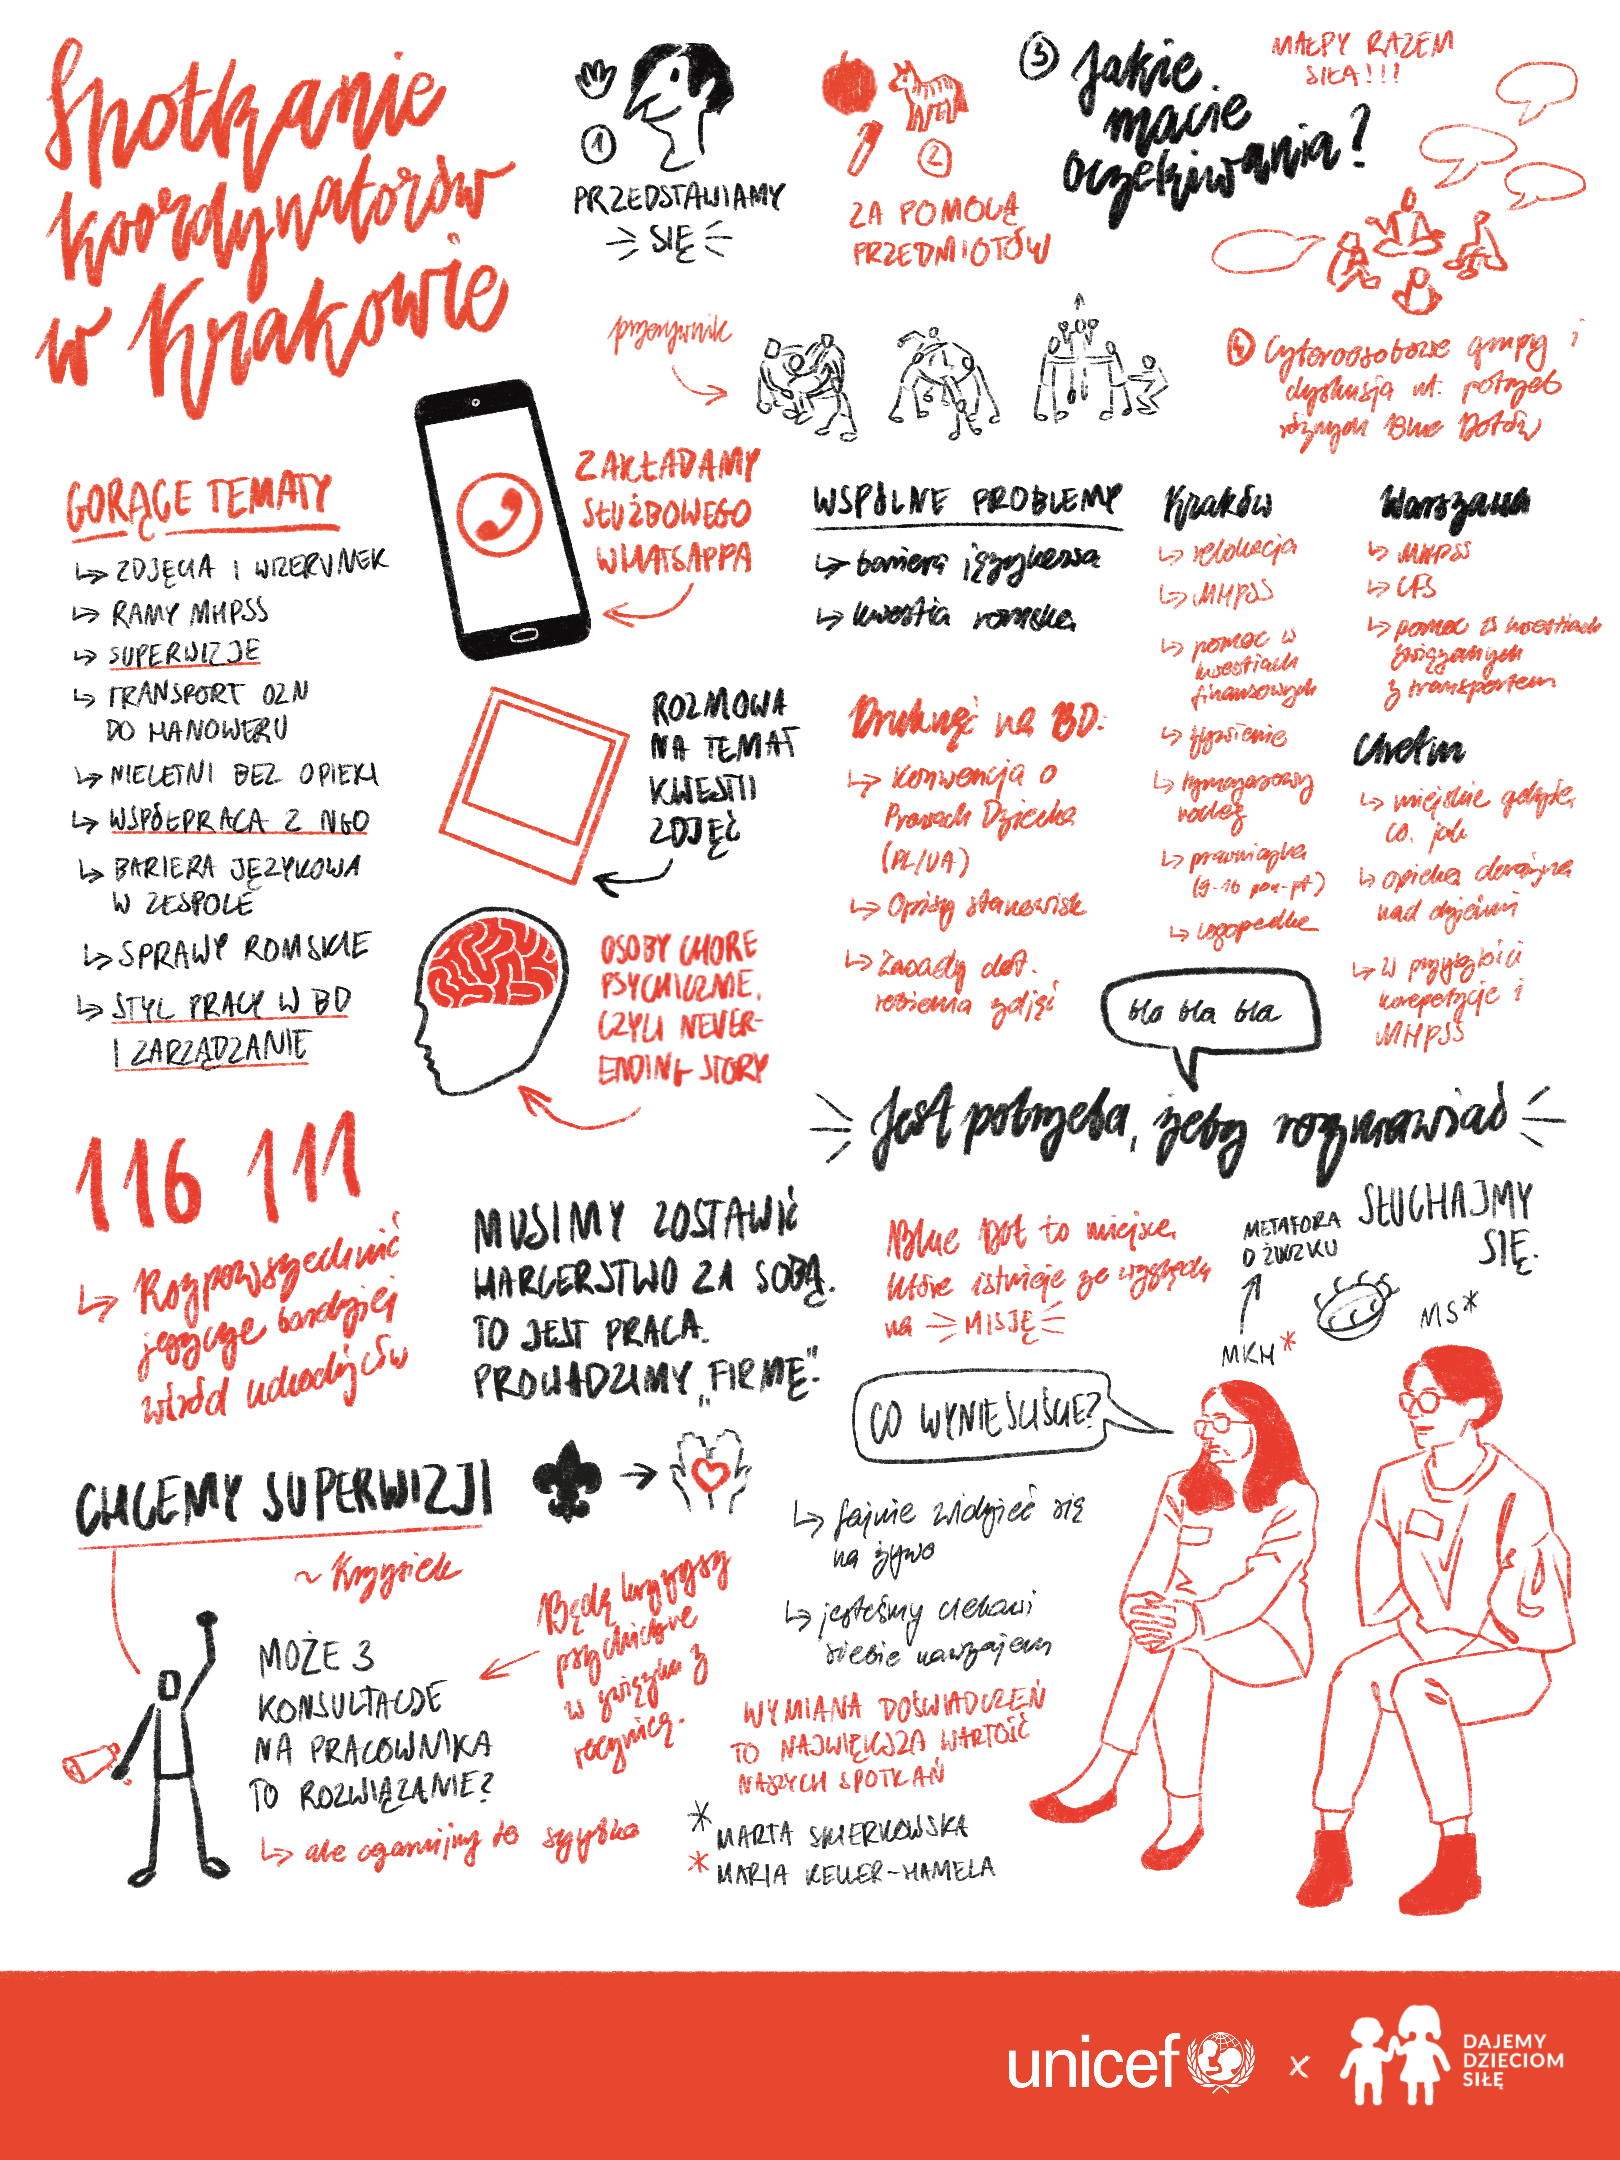 Spotkanie
koordynatorów
w Krakowie
1
PRZEDSTAWIAMY
SIĘ
2
ZA POMOCĄ
PRZEDMIOTÓW
3 Jakie
macie
oczekiwania?
MAŁPY RAZEM
SIŁA!!!
przerywnik
4 Czteroosobowe grupy i
dyskusja nt. potrzeb
różnych Blue Dotów
GORĄCE TEMATY
ZDJĘCIA I WIZERUNEK
RAMY MHPSS
SUPERWIZJE
TRANSPORT OZN
DO HANOWERU
NIELETNI BEZ OPIEKI
WSPÓŁPRACA Z NGO
BARIERA JĘZYKOWA
W ZESPOLE
SPRAWY ROMSKIE
STYL PRACY W BD
I ZARZĄDZANIE
ZAKŁADAMY
SŁUŻBOWEGO
WHATSAPPA
ROZMOWA
NA TEMAT
KWESTII
ZDJĘĆ
OSOBY CHORE
PSYCHICZNIE,
CZYLI NEVER-
ENDING STORY
WSPÓLNE PROBLEMY
bariera językowa
kwestia romska
Kraków
relokacja
MHPSS
pomoc w
kwestiach
finansowych
żywienie
tymczasowy
nocleg
prawniczka
(9-16 pon-pt)
logopedka
Warszawa
MHPSS
CFS
pomoc w kwestiach
związanych
z transportem
Chełm
miejskie gdzie,
co, jak
opieka doraźna
nad dziećmi
w przyszłości
korepetycje i
MHPSS
Druknąć na BD:
Konwencja o
Prawach Dziecka
(PL/UA)
Opisy stanowisk
Zasady dot.
robienia zdjęć
bla bla bla
Jest potrzeba, żeby rozmawiać
116 111
Rozpowszechnić
jeszcze bardziej
wśród uchodźców
MUSIMY ZOSTAWIĆ
HARCERSTWO ZA SOBĄ.
TO JEST PRACA.
PROWADZIMY „FIRMĘ”.
Blue Dot to miejsce
które istnieje ze względu
na MISJĘ
METAFORA
O ŻWIZKU
SŁUCHAJMY
SIĘ.
MKH*
MS*
CO WYNIEŚLIŚCIE?
CHCEMY SUPERWIZJI
~ Krzysiek
MOŻE 3
KONSULTACJE
NA PRACOWNIKA
TO ROZWIĄZANIE?
ale oganijmy to szybko
Będą kryzysy
psychiczne
w związku z
rocznicą.
fajnie widzieć się
na żywo
jesteśmy ciekawi
siebie nawzajem
WYMIANA DOŚWIADCZEŃ
TO NAJWIĘKSZA WARTOŚĆ
NASZYCH SPOTKAŃ
* MARTA SKIERKOWSKA
* MARIA KELLER-HAMELA
unicef x DAJEMY
DZIECIOM
SIŁĘ